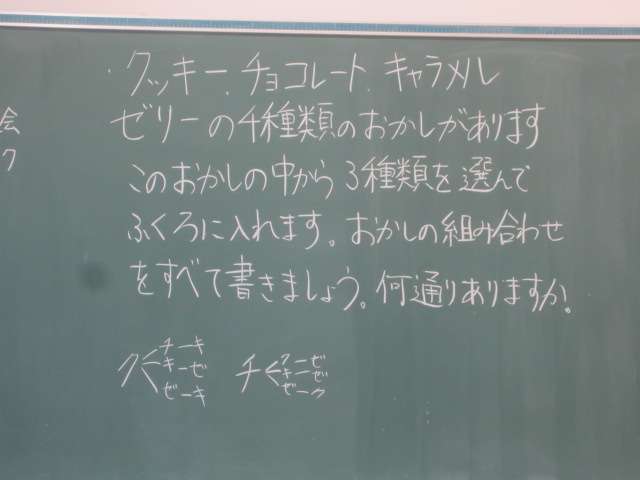 クッキー、チョコレート、キャラメル
ゼリーの4種類のおかしがあります
このおかしの中から3種類を選んで
ふくろに入れます。おかしの組み合わせ
をすべて書きましょう。何通りありますか。
会
ク
ク＜ チーキ
キーゼ
ゼーキ
チ＜ クーゼ
キーゼ
ゼーク